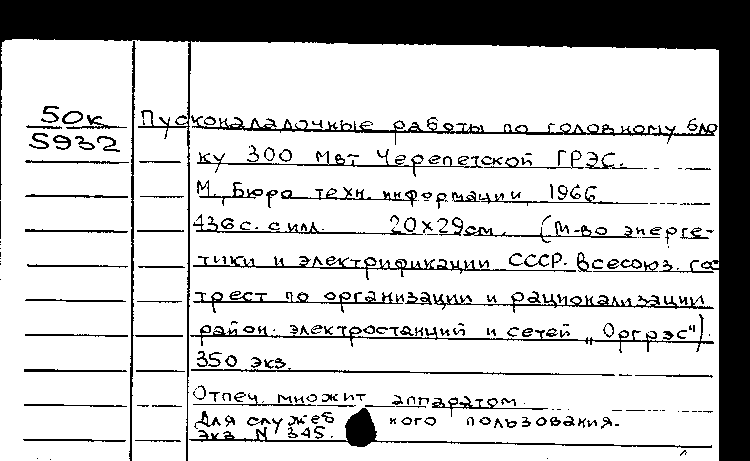 50к Пусконаладочные работы по головному бло
5932 ку 300 Мвт Черепетской ГРЭС.
М., Бюро техн. информации, 1966
436 с. с илл. 20x29 см. (М-во энерге-
тики и электрификации СССР. Всесоюз. гос
трест по организации и рационализации
район. электростанций и сетей „Оргрэс").
350 экз.
Отпеч. множит. аппаратом.
Для служеб ного пользования.
Экз. N 345.